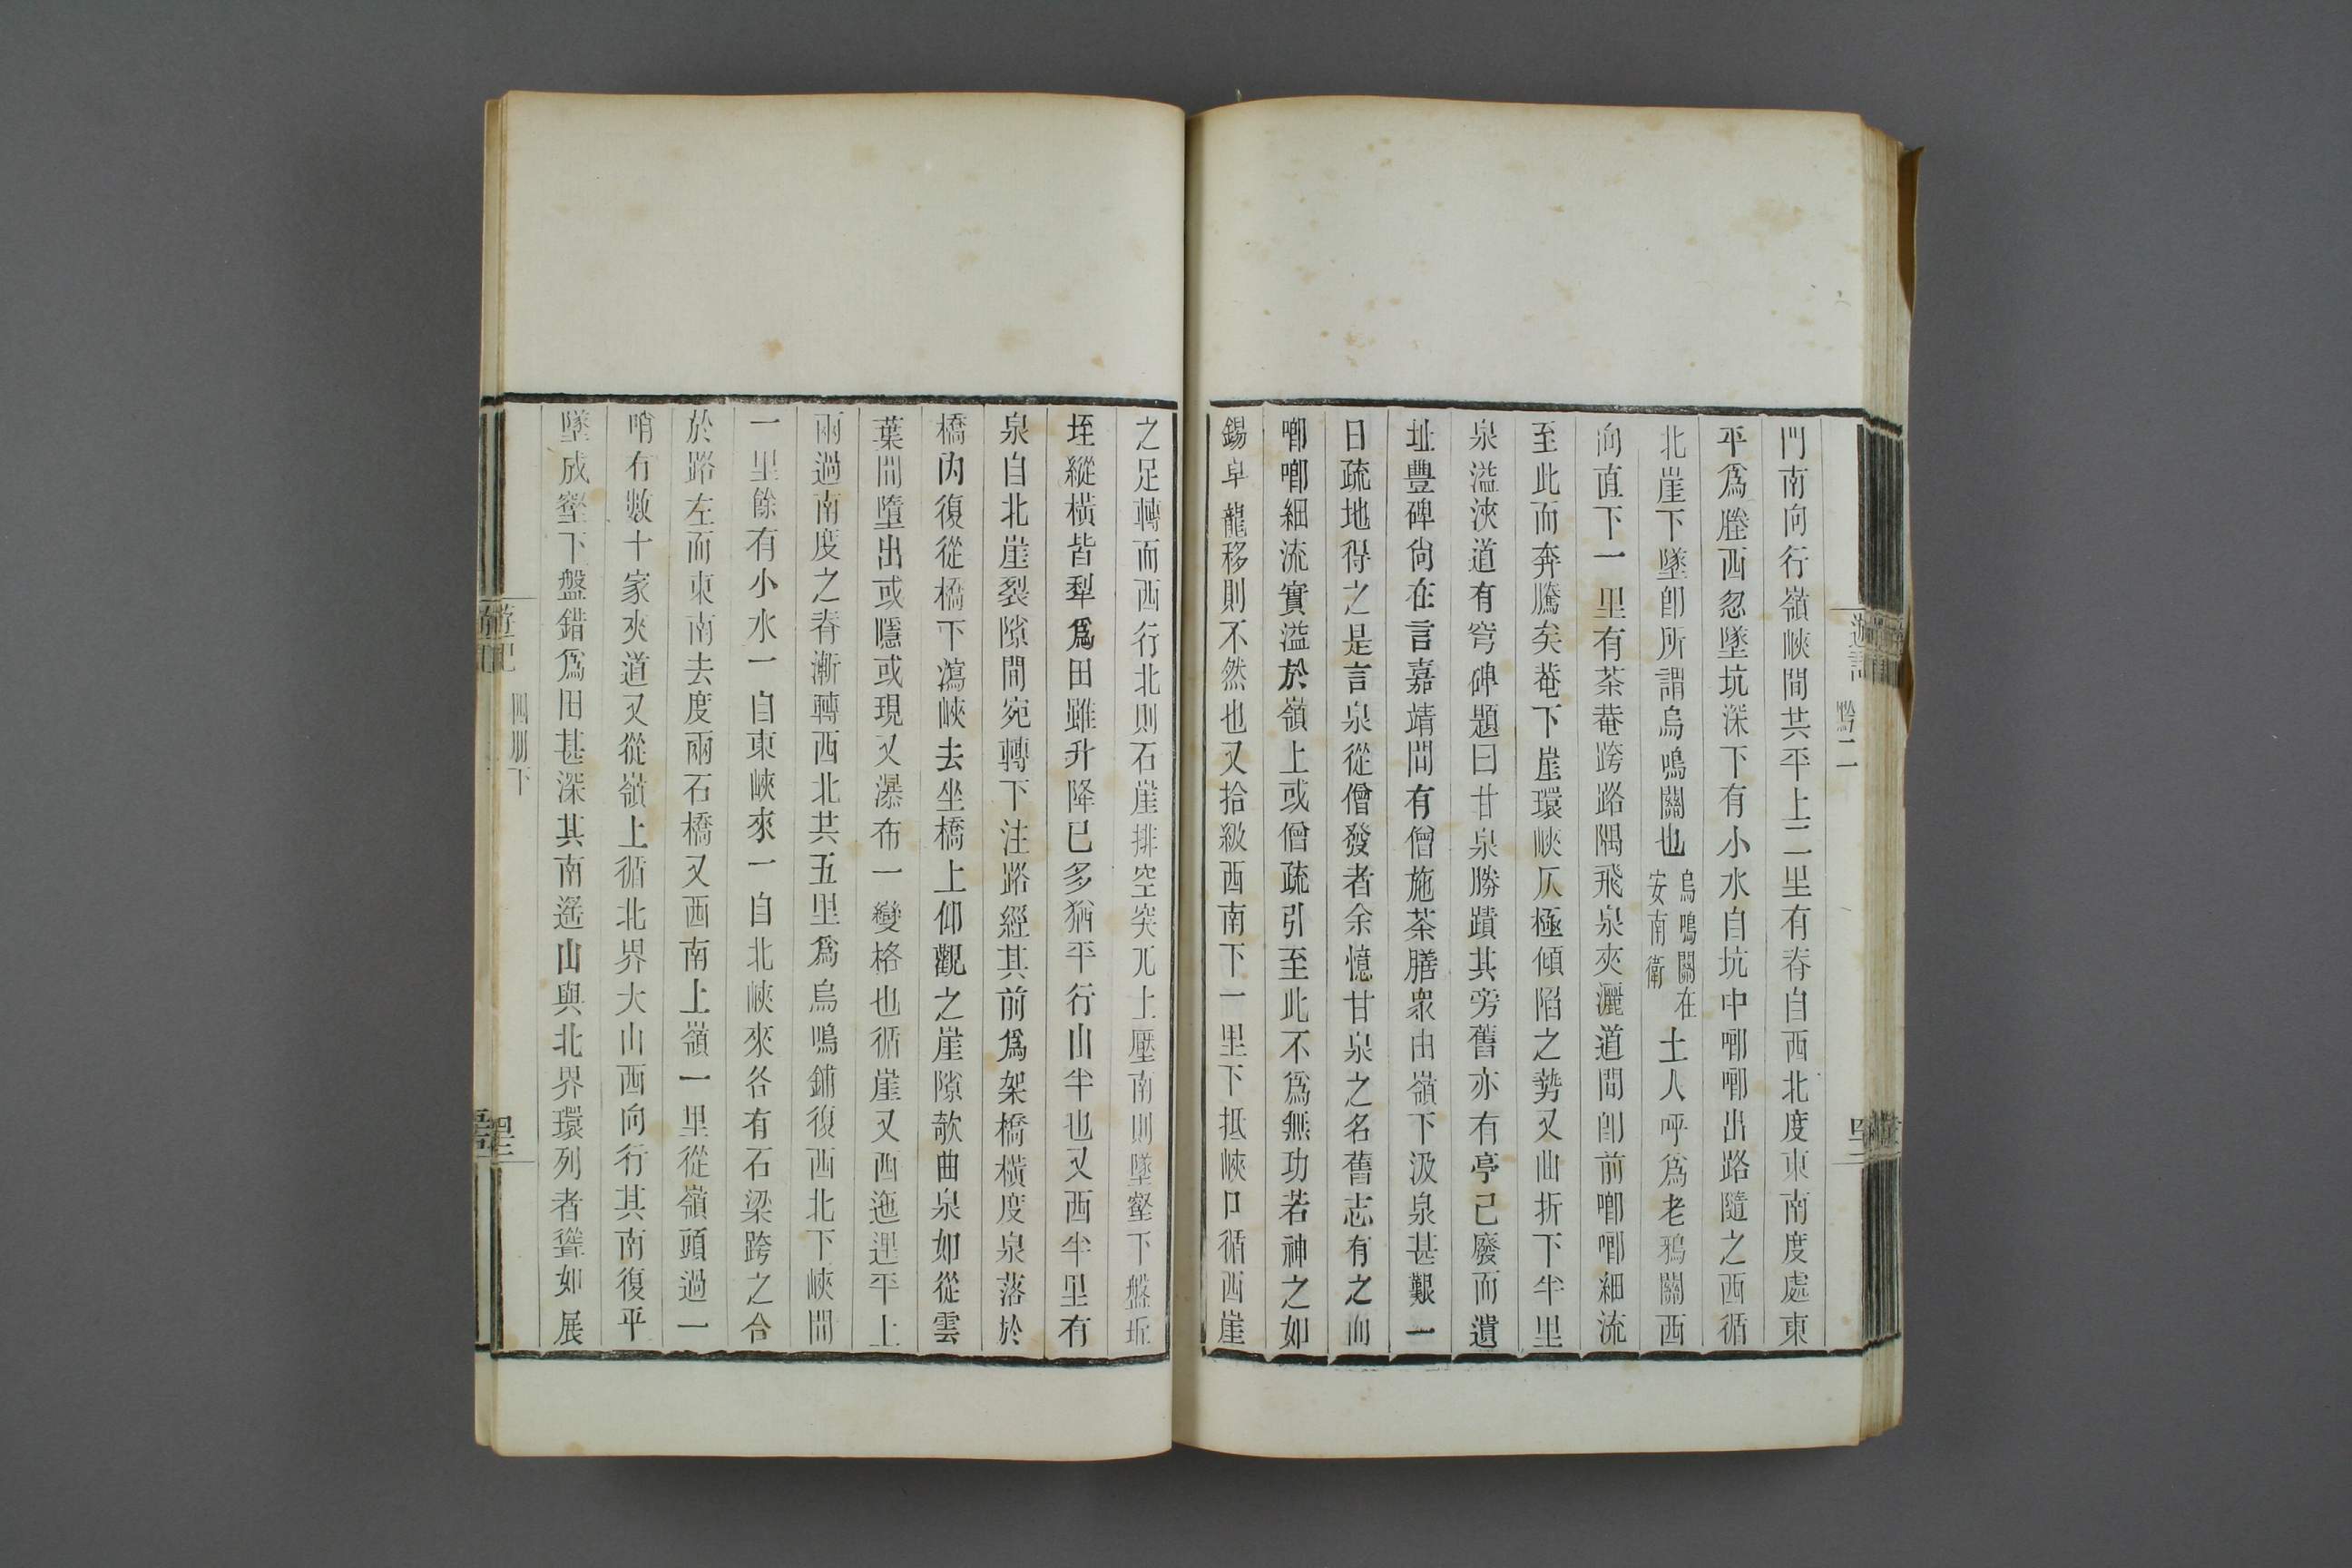 門南向行嶺峽間共平上二里有脊自西北度東南度處東
平爲塍西忽墜坑深下有小水自坑中唧唧出路隨之西循
北崖下墜卽所謂烏鳴關也烏鳴關在安南衛土人呼爲老鴉關西
向直下一里有茶菴跨路隅飛泉夾灑道間卽前唧唧細流
至此而奔騰矣菴下崖環峽仄極傾陷之勢又曲折下半里
泉溢浹道有穹碑題曰甘泉勝蹟其旁舊亦有亭已廢而遺
址豐碑尙在言嘉靖間有僧施茶膳衆由嶺下汲泉甚艱一
日疏地得之是言泉從僧發者余憶甘泉之名舊志有之而
唧唧細流實溢於嶺上或僧疏引至此不爲無功若神之如
錫卓龍移則不然也又拾級西南下一里下抵峽口循西崖
之足轉而西行北則石崖排空突兀上壓南則墜壑下盤坵
垤縱橫皆犁爲田雖升降已多猶平行山半也又西半里有
泉自北崖裂隙間宛轉下注路經其前爲架橋橫度泉落於
橋內復從橋下瀉峽去坐橋上仰觀之崖隙欹曲泉如從雲
葉間墮出或隱或現又瀑布一變格也循崖又西迤邐平上
兩過南度之脊漸轉西北共五里爲烏鳴鋪復西北下峽間
一里餘有小水一自東峽來一自北峽來各有石梁跨之合
於路左而東南去度兩石橋又西南上嶺一里從嶺頭過一
哨有數十家夾道又從嶺上循北界大山西向行其南復平
墜成壑下盤錯爲田甚深其南遥山與北界環列者聳如展
遊記
四册下